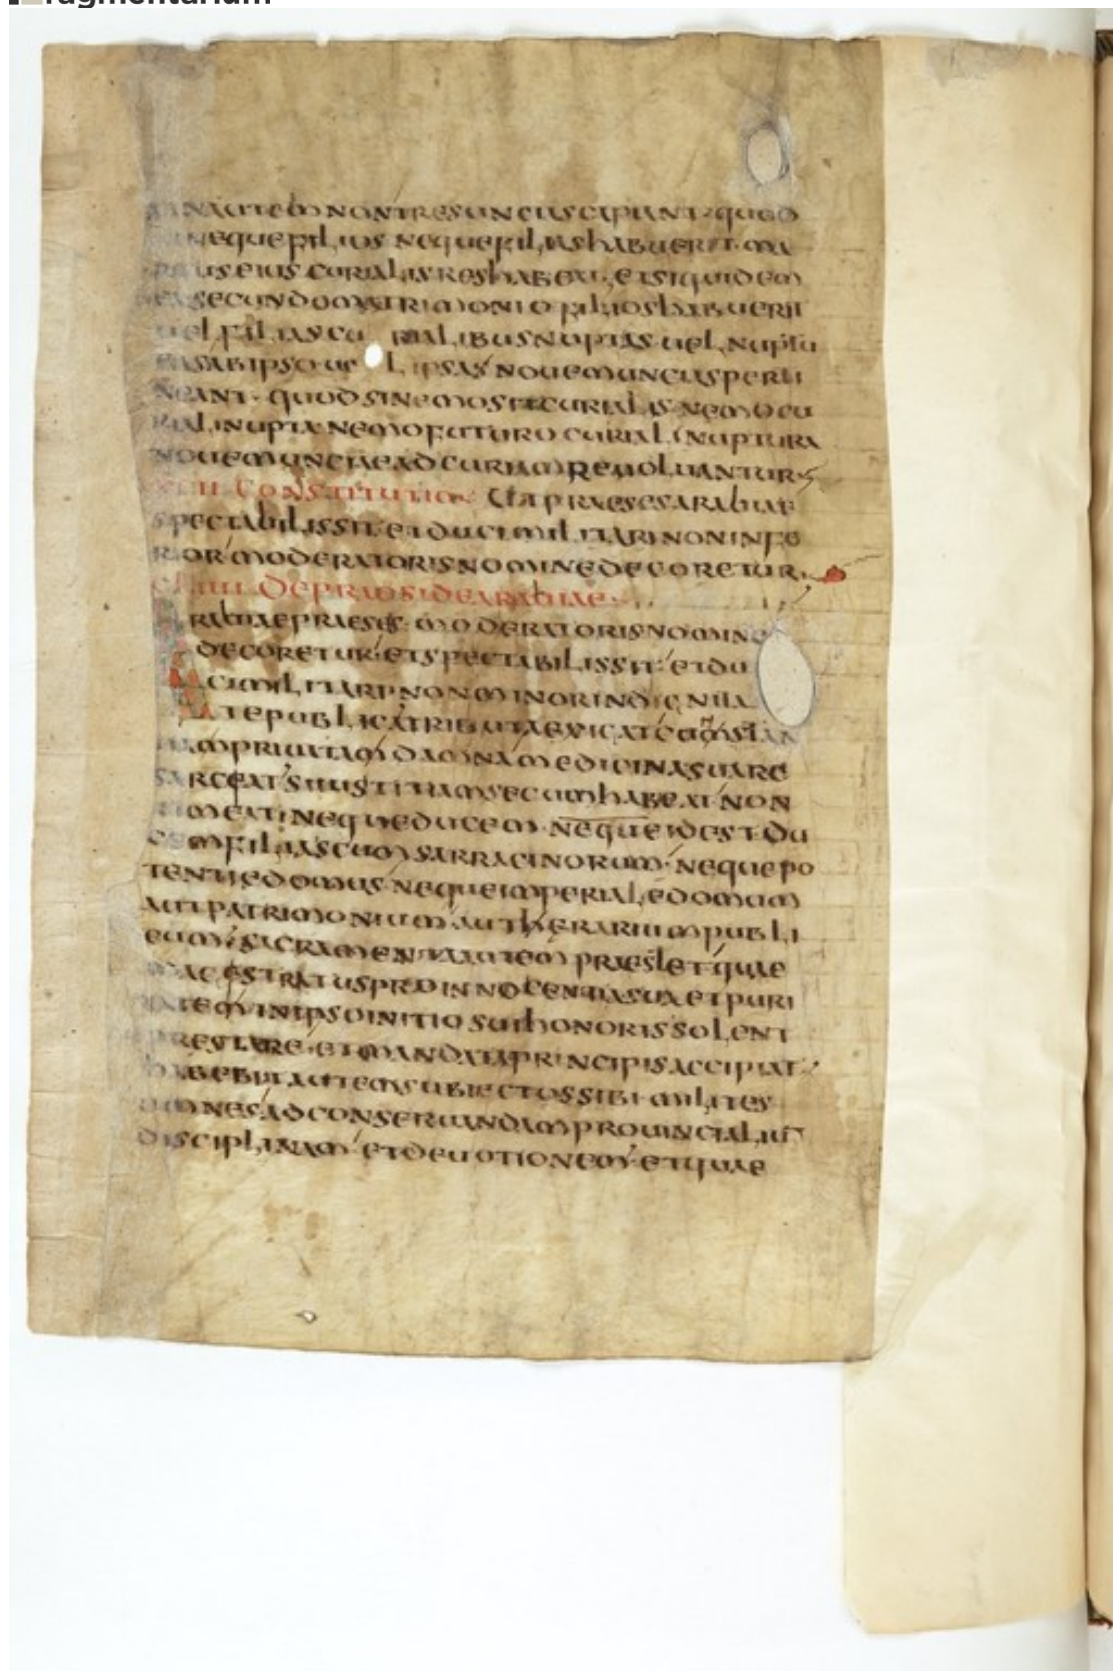 ragmentarium
NAUTEM NON TRES UNCIAS CAPIANT· QUOD
NEQUE FILIOS NEQUE FILIAS HABUERIT· MA
EIUS CURIALIS RES HABEAT· ET SI QUIDEM
SECUNDO MATRIMONIO FILIOS HABUERIT
UEL FILIAS CU RIALIBUS NUPTAS UEL NUPTU
AB IPSO UE L IPSAS NOUEM UNCIAS PERTI
NEANT· QUOD SI NEMO SIT CURIALIS NEMO CU
RIALI NUPTA NEMO FUTURO CURIALI NUPTURA
NOUEM UNCIAE AD CURIAM REUOLUANTUR
II CONSTITUTIO UTA PRAESES ARABIAE
SPECTABILIS SIT· ET DUCI MILITARI NON INFE
RIOR MODERATORIS NOMINE DECORETUR
DE PRAESIDE ARABIAE
RABIAE PRAESES MODERATORIS NOMINE
DECORETUR· ET SPECTABILIS SIT· ET DU
CI MILITARI NON MINOR IN DIGNITA
TE PUBLICA TRIBUTA EXIGAT
PRIUATAM DAMNA MEDICINAS UARE
SARCEAT· IUSTITIAM SECUM HABEAT NON
NEQUE DUCEM· NEQUE IDEST DU
CEM FILIAS CUM SARRACINORUM· NEQUE PO
TENTIE DOMUS NEQUE IMPERIALE DOMUM
AUT PATRIMONIUM AUT HERARIUM PUBLI
CUM· SACRAMENTA AUTEM PRAESTET QUAE
MAGESTRATUS PRO INNOCENTIA SUA ET PURI
TATEM IN IPSO INITIO SUI HONORIS SOLENT
PRESTARE· ET MANDATA PRINCIPIS ACCIPIAT
HABEBIT AUTEM SUBIECTOS SIBI MILITES
OMNES AD CONSERUANDAM PROUINCIALIU
DISCIPLINAM· ET DEUOTIONEM· ET QUAE